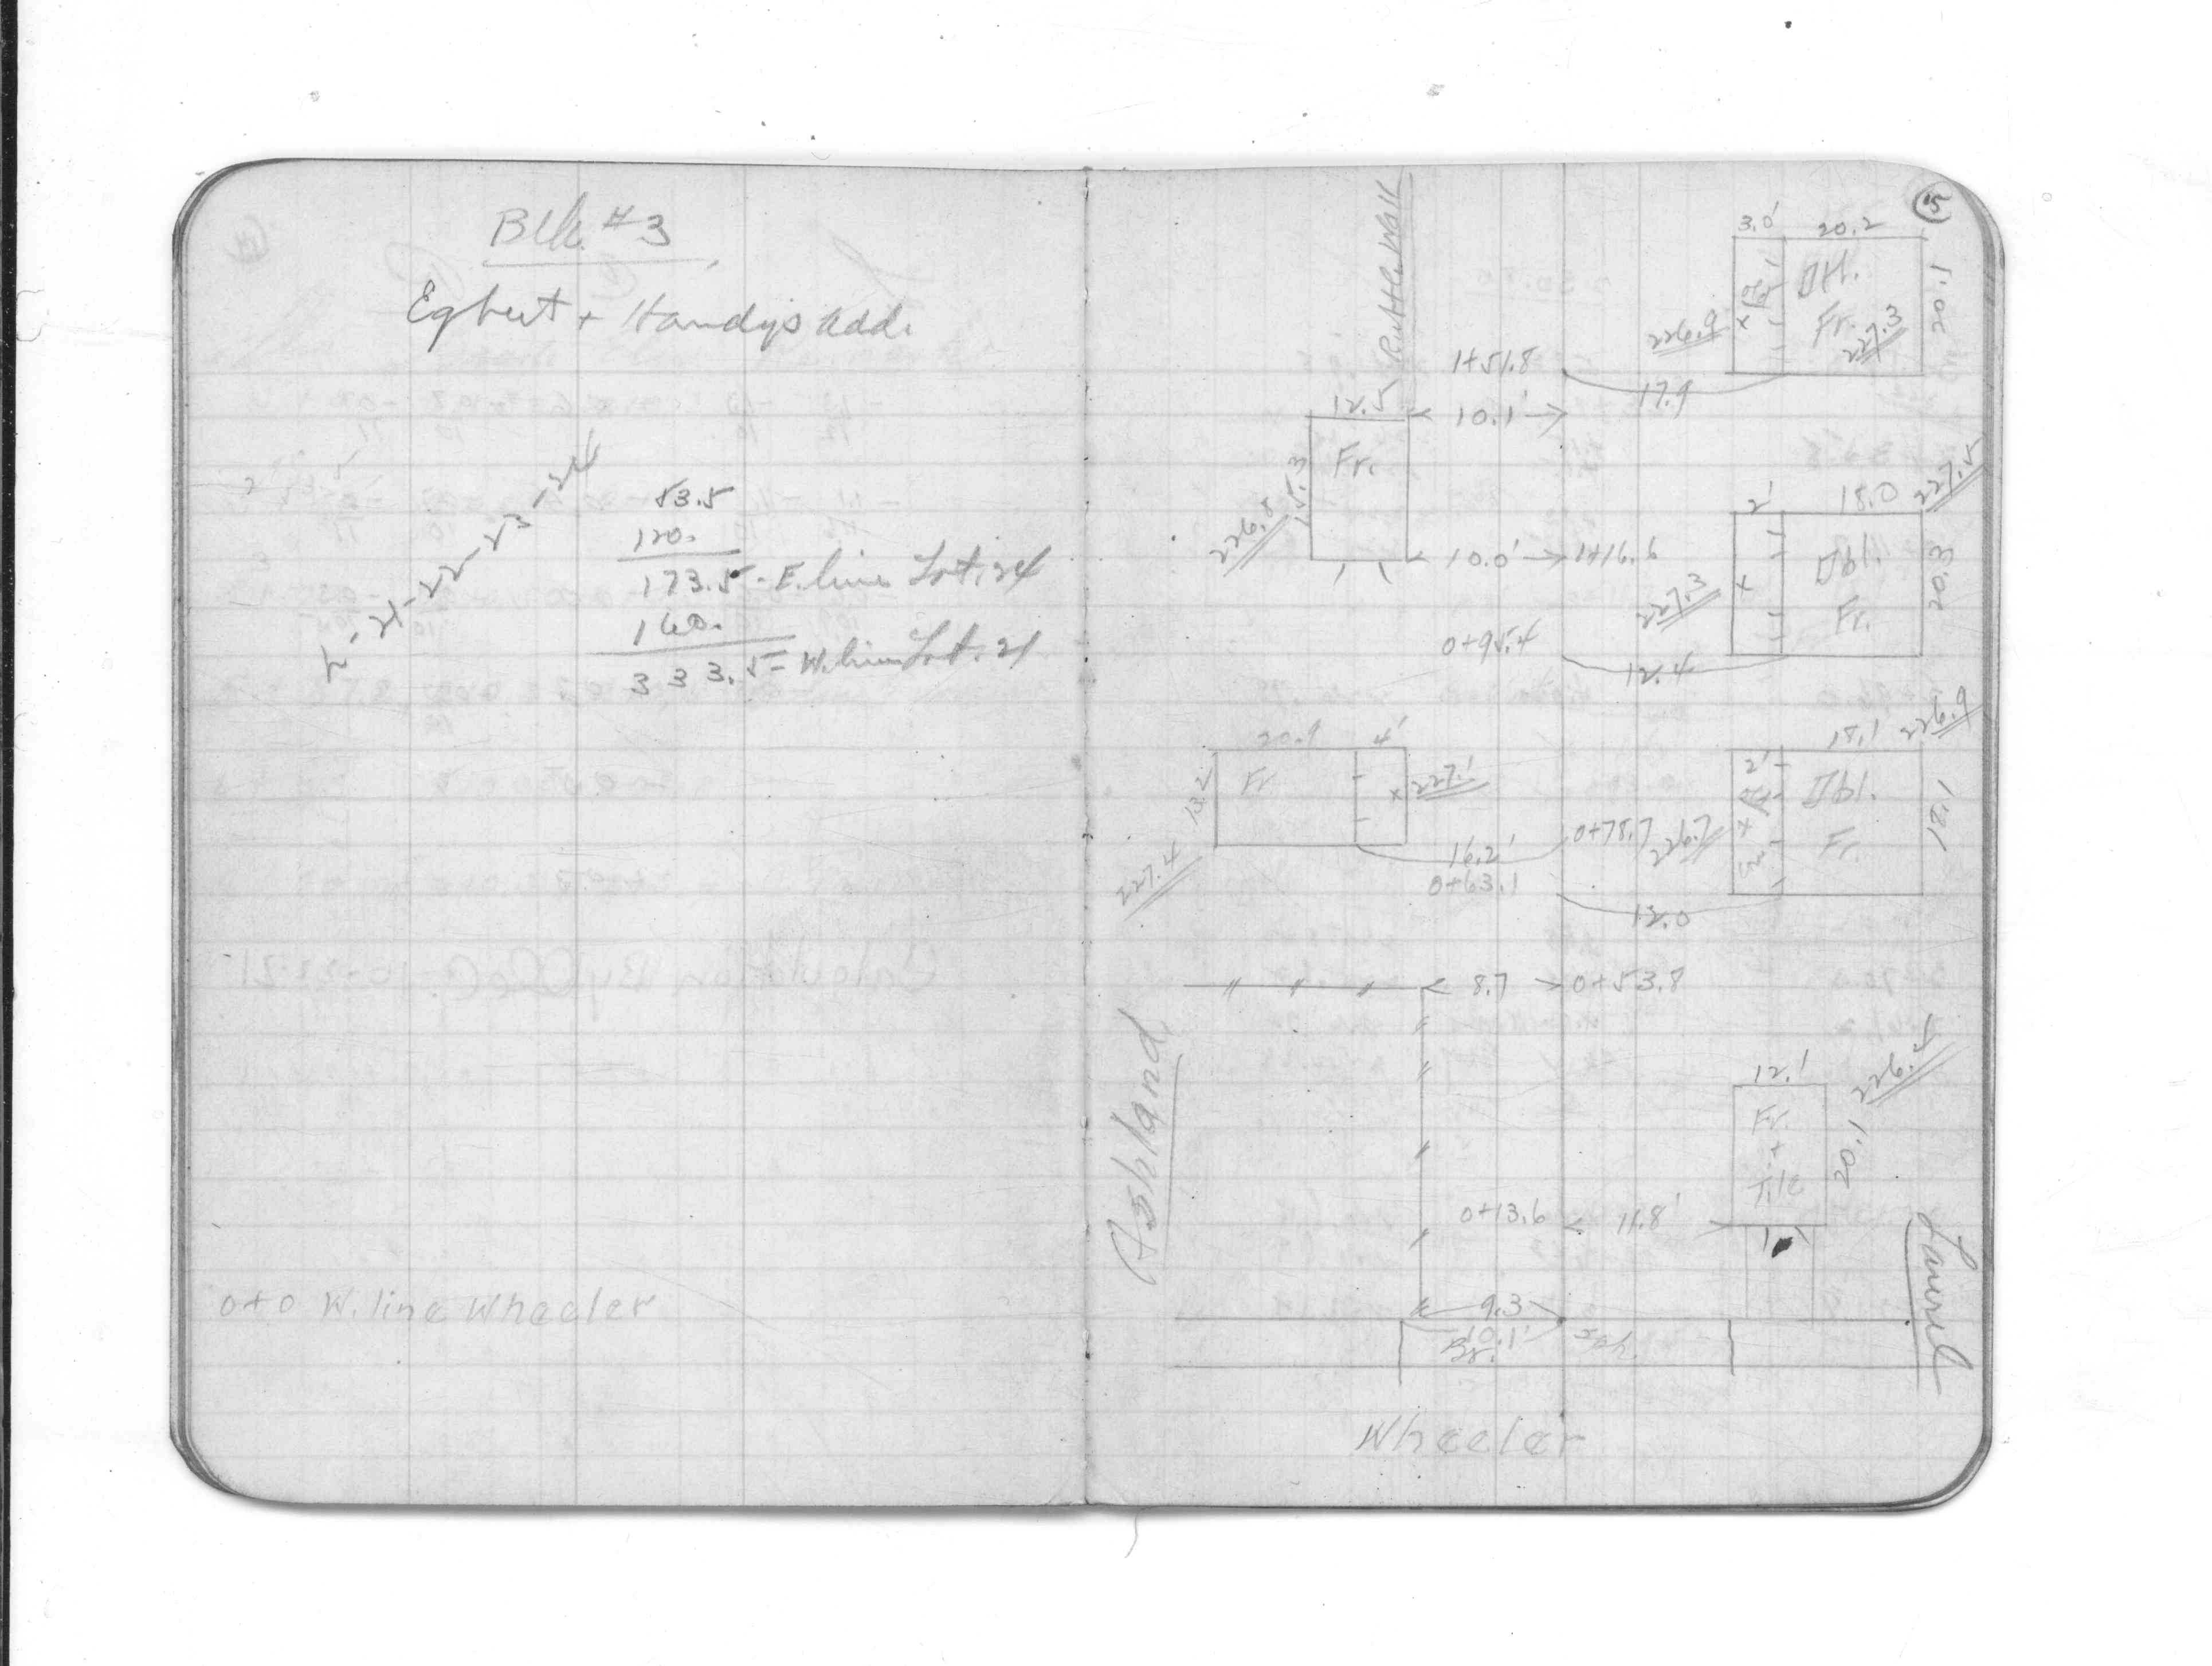 Blk. #3
Egbert + Handy's Add.
53.5
120.
173.5 - E. line Lot. 24
160.
333.5 - W. line Lot. 21
21-22-23-24
0+0 W. line Wheeler
15
3.0' 20.2
DH.
Fr.
20.1
226.9 x
227.3
1+51.8
17.9
12.5
10.1'
Fr.
15.3
226.8
10.0' 1+16.6
2' 18.0 227.5
Dbl.
Fr.
20.3
227.3 x
0+95.4
12.4
20.9 4'
Fr
13.2
x 227.1
227.4
16.2' 0+78.7
0+63.1
18.1 226.9
2'
Dbl.
Fr.
18.1
226.7 x
12.0
8.7 0+53.8
Ashland
12.1 226.4
Fr.
+
Tile
20.1
0+13.6 11.8'
Laurel
9.3
10.1'
Br.
Wheeler